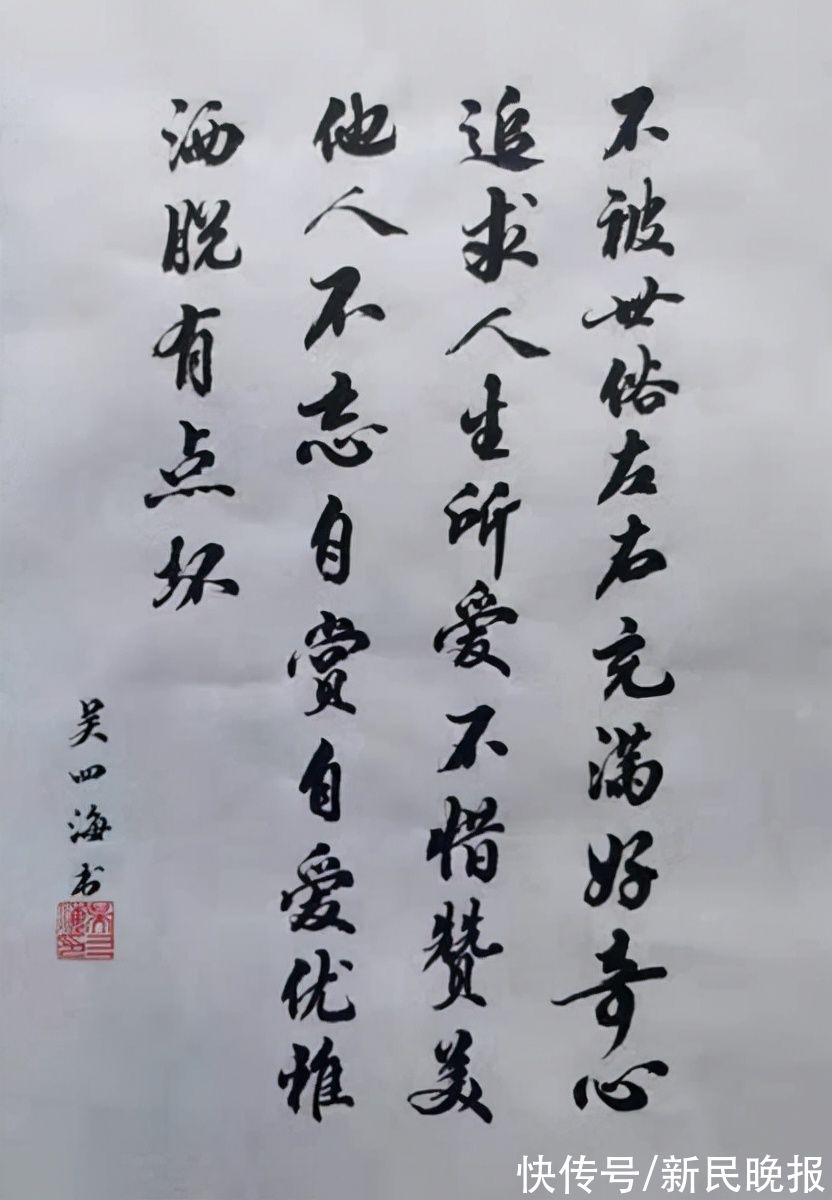 不被世俗左右充满好奇心
追求人生所爱不惜赞美
他人不忘自赏自爱优雅
洒脱有点坏
吴四海书
快传号/新民晚报